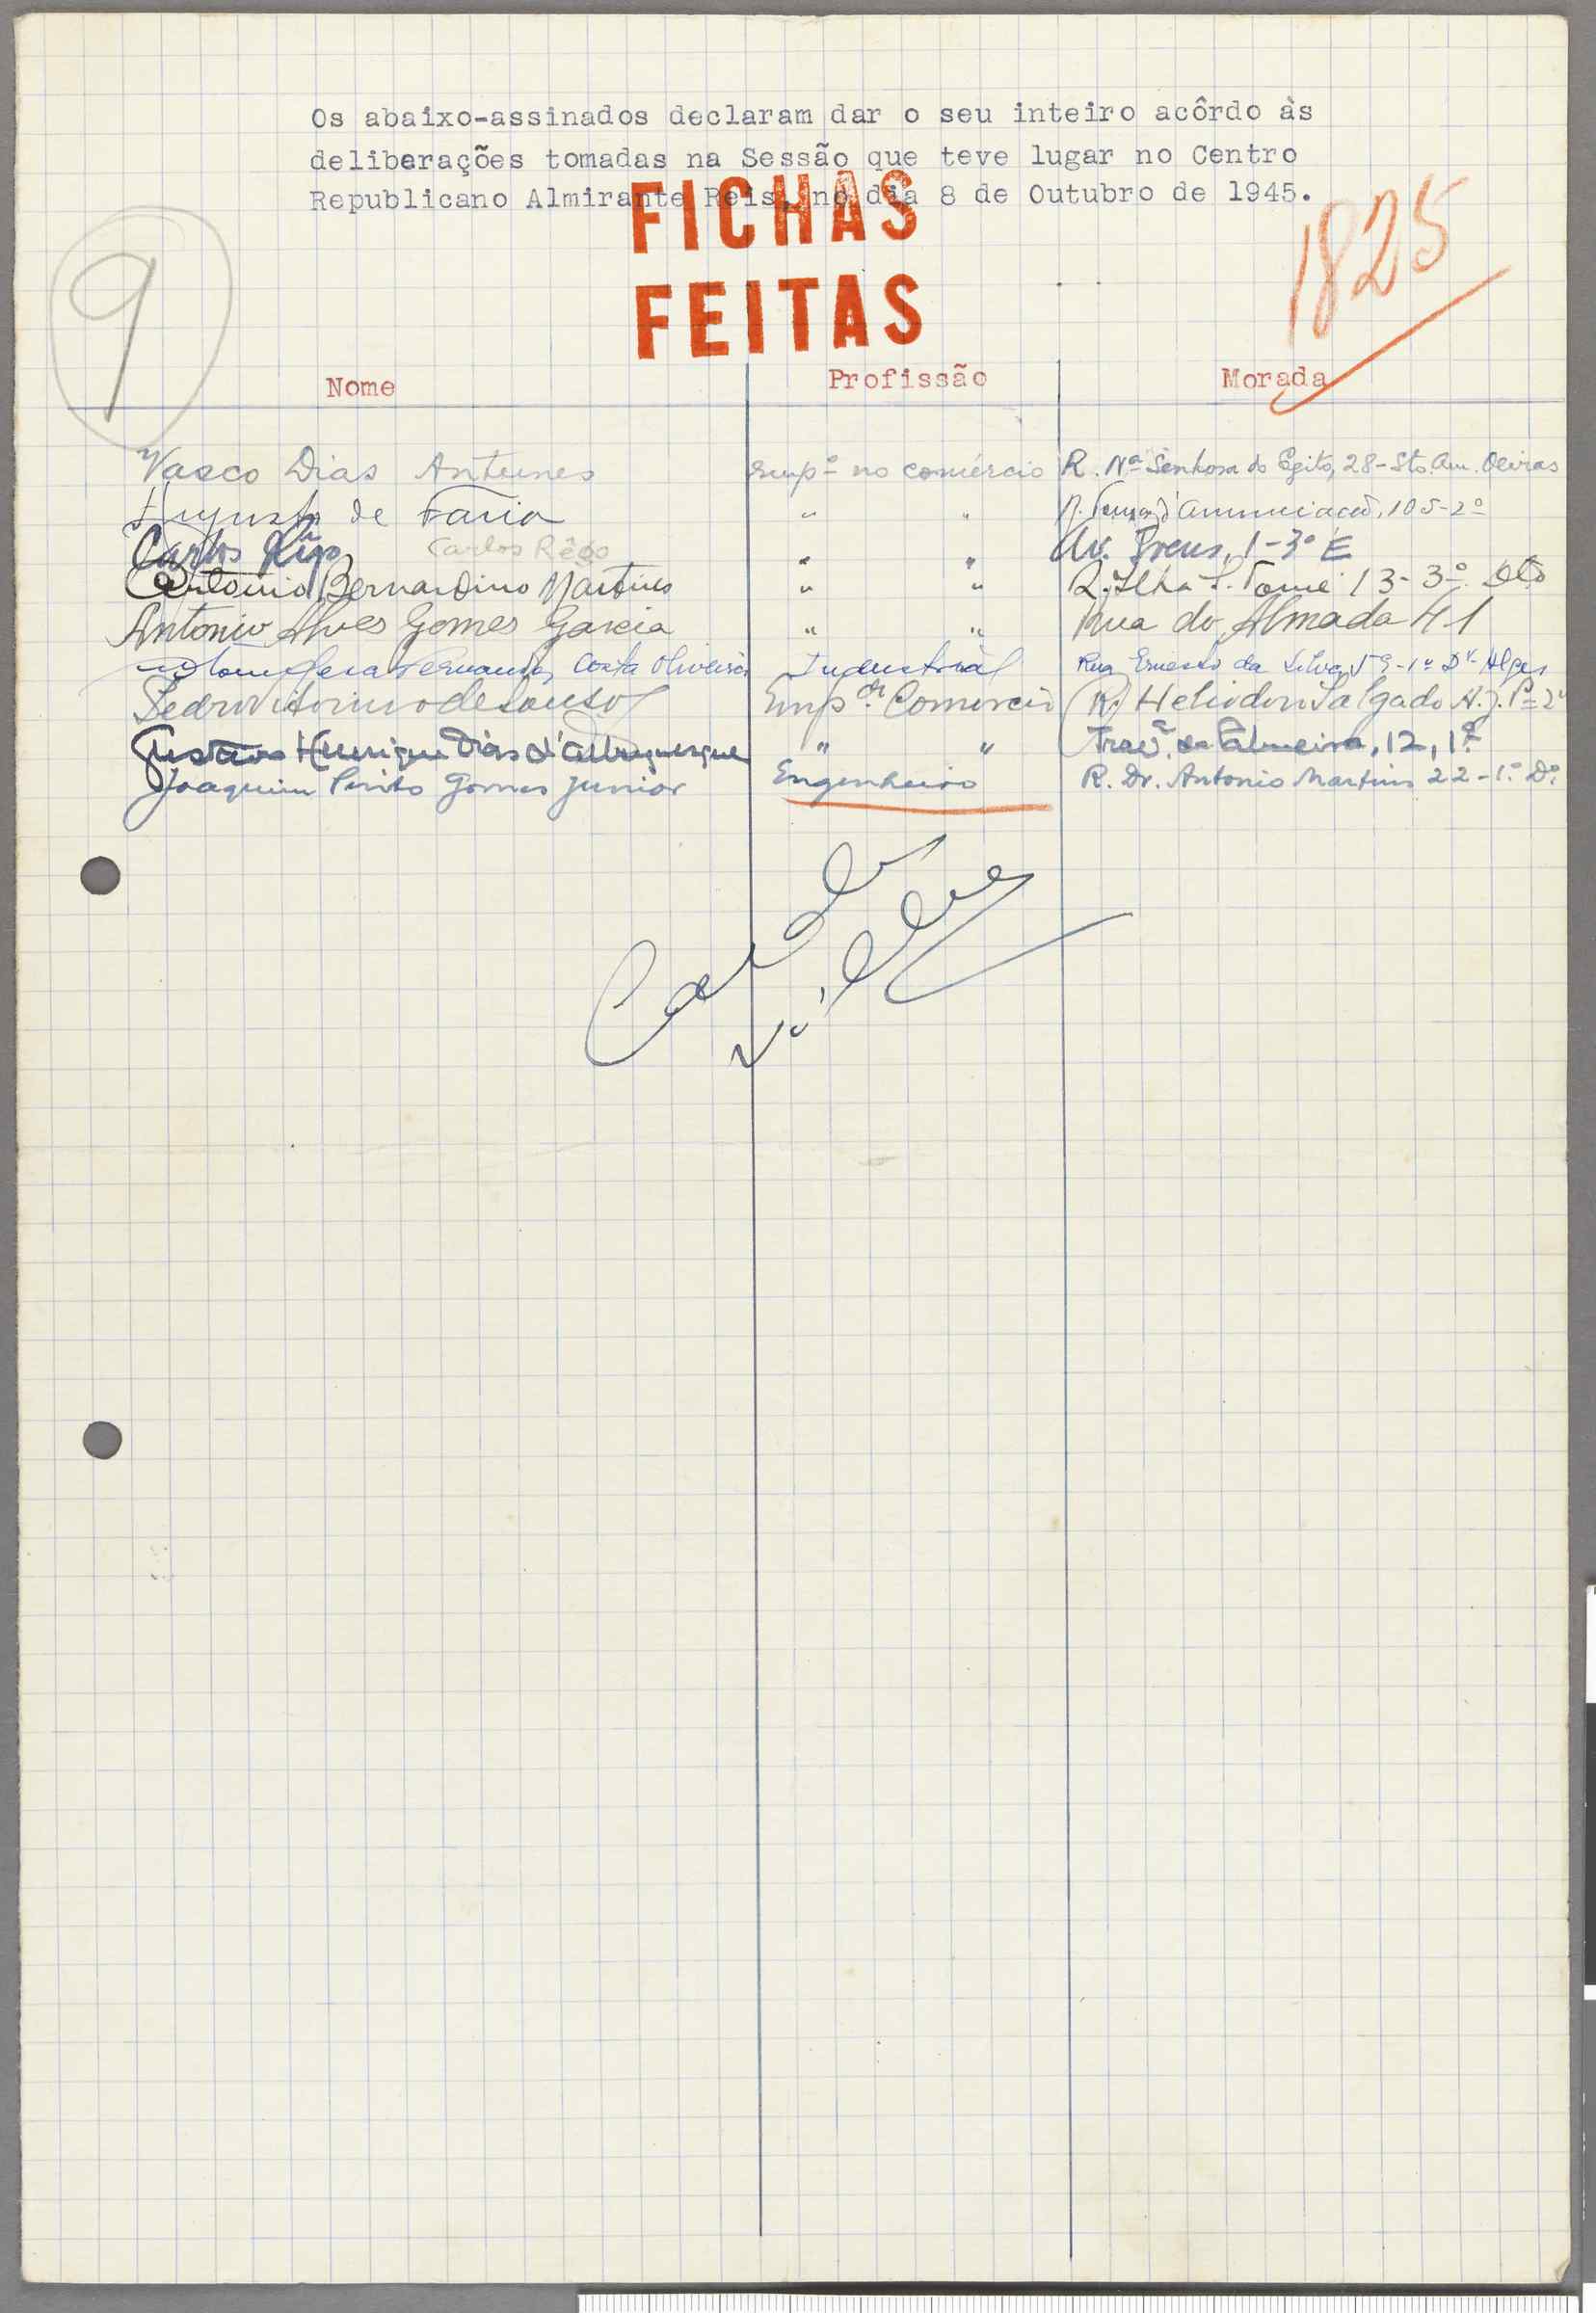 Os abaixo-assinados declaram dar o seu inteiro acôrdo às
deliberações tomadas na Sessão que teve lugar no Centro
Republicano Almirante Reis, no dia 8 de Outubro de 1945.
FICHAS
FEITAS
1825
9
Nome Profissão Morada
Vasco Dias Antunes Empº no comércio R. Nª Senhora do Egito, 28-Stº Am. Oeiras
Augusto de Faria " " R. d'Anunciação, 105-2º
Carlos Rêgo Carlos Rêgo " " Av. 1-3º E
Antonio Bernardino Martins " " R. Ilha S. Tomé 13-3º Dtº
Antonio Alves Gomes Garcia " " Rua do Almada 41
Fernandes Costa Oliveira Industrial Rua Ernesto da Silva -1º Dº Algés
Pedro Vitorino de Sousa Empº Comercio R. Heliodoro Salgado
Gustavo Henrique Dias d'Albuquerque " " Travª da Palmeira, 12, 1º
Joaquim Pinto Gomes Junior Engenheiro R. Dr. Antonio Martins 22-1º Dº